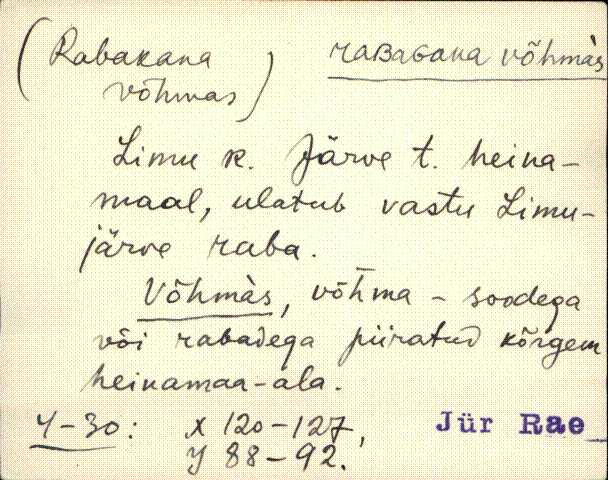 (Rabakana
võhmas)
RABAGANA VÕHMÀS
Limu k. Järve t. heina-
maal, ulatub vastu Limu-
järve raba.
Võhmàs, võhma - soodega
või rabadega piiratud kõrgem
heinamaa-ala.
Y-30: X 120-127,
Y 88-92.
Jür Rae